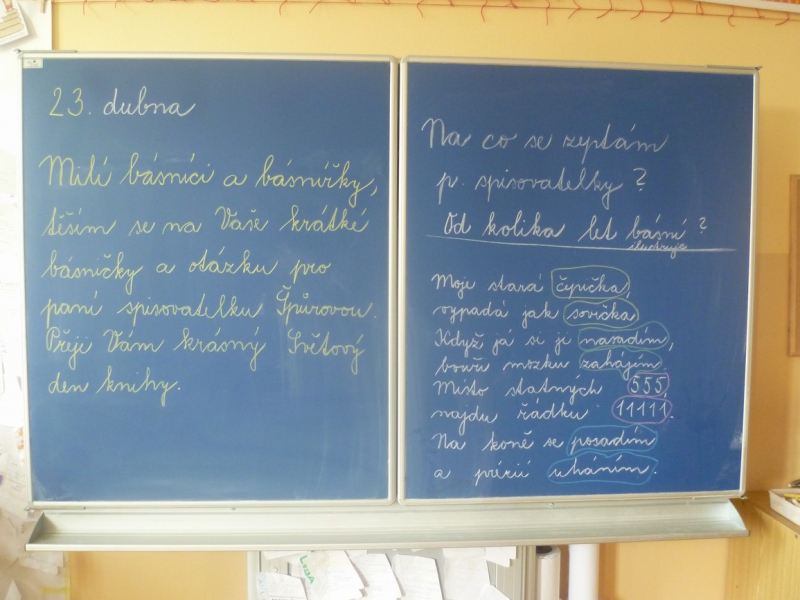 23. dubna
Milí básníci a básnířky,
těším se na Vaše krátké
básničky a otázku pro
paní spisovatelku Špůrovou.
Přeji Vám krásný Světový
den knihy.
Na co se zeptám
p. spisovatelky?
Od kolika let básní?
ilustruje
Moje stará čepička,
vypadá jak sovička.
Když já si je nasadím,
bouři mozku zahájím.
Místo statných 555,
najdu řádku 11111.
Na koně se posadím
a prérií uháním.
LÍDA